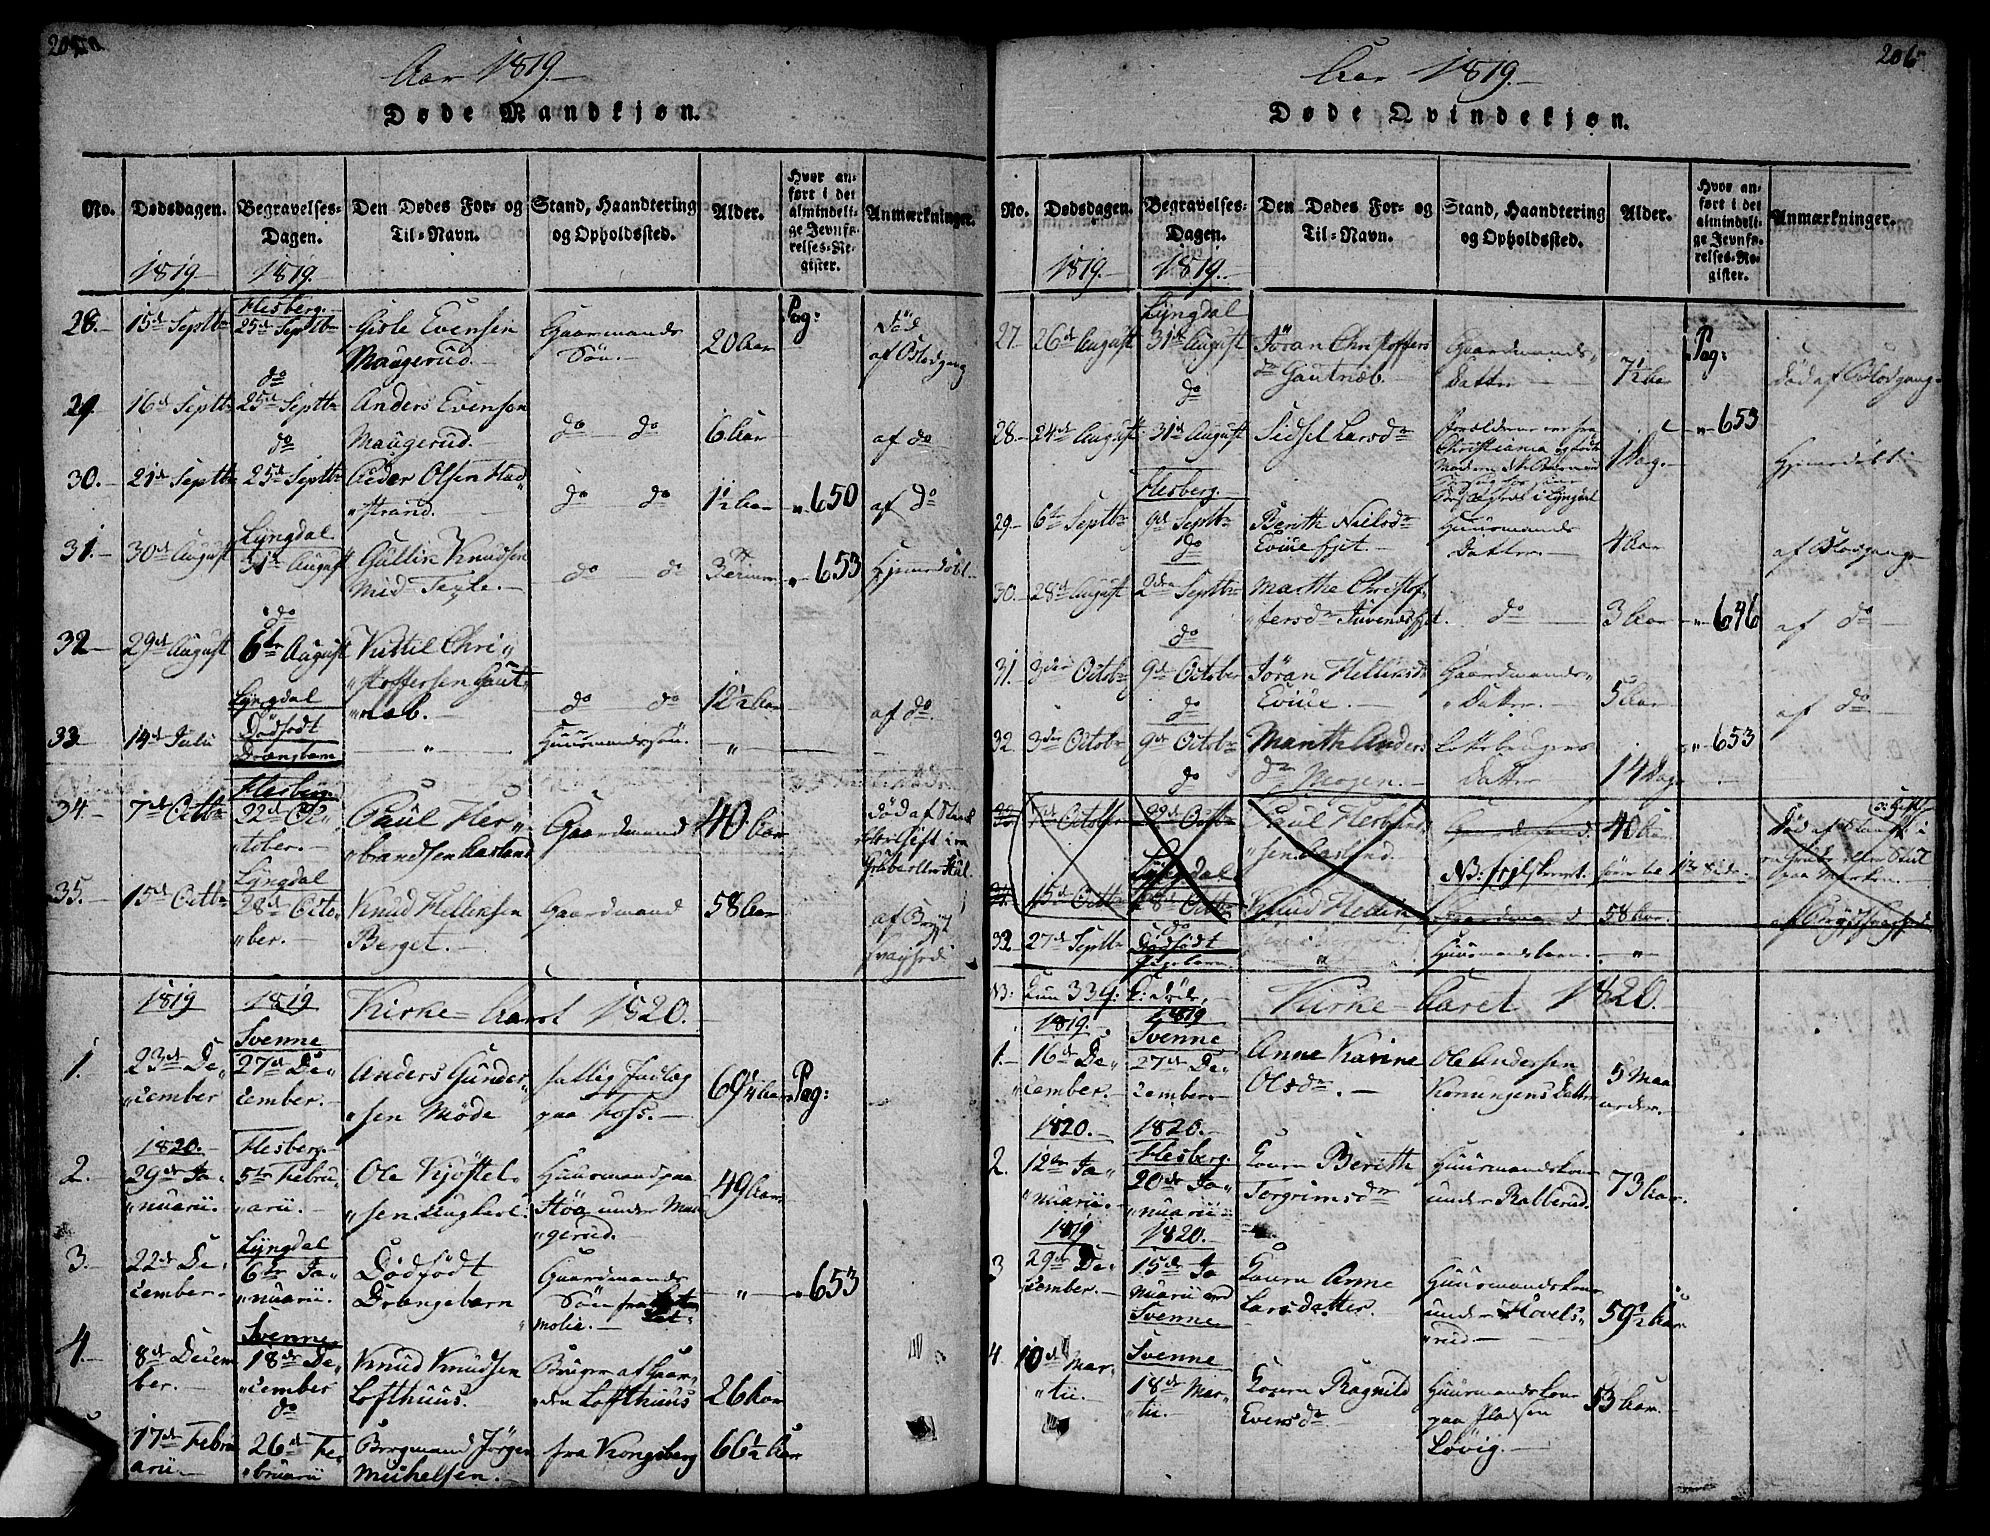 Aar 1819.
Døde Mandkjøn.
No.
Dødsdagen.
Begravelses-
Dagen.
Den Dødes For- og
Til-Navn.
Stand, Haandtering
og Opholdssted.
Alder.
Hvor an-
ført i det
almindeli-
ge Jevnfø-
relses-Re-
gister.
Anmærkninger.
1819
1819.
28. 15de Septbr
Flesberg.
25de Septbr
Gisle Evensen
Maugerud.
Gaardmands
Søn.
20 Aar
Pag:
Død
af Blodgang
29. 16de Septbr
do
25de Septbr
Anders Evensen
Maugerud.
do do
6 Aar
af do
30. 21de Septbr
do
25de Septbr
Peder Olsen
strand.
do do
1½ Aar
650
af do
31. 30de August
Lyngdal
31te August
Gullik Knudsen
do do
653
32 29de August
do
6te August
Kittil Chri
stoffersen Gaut
næb.
do do
12½ Aar
af do
33. 14de Julii
Lyngdal
Dødfødt
Drengebarn
"
Huusmandssøn.
"
34. 7de Octbr
Flesberg.
22de Oc
tober.
Paul Her
brandsen Aasland
Gaardmand
40 Aar
Død af
35. 15de Octbr
Lyngdal
28de Octo
ber.
Knud Hellesen
Berget.
Gaardmand
58 Aar
af Bryst
svaghed
1819
1819
Kirke-Aaret 1820.
1. 23de De
cember
Svenne
27de De
cember.
Anders Gunder
sen Møde
fattig Indlæg
paa Foss.
69¼ Aar
Pag:
1820.
2. 29de Ja
nuarii.
Flesberg.
5te Febru
arii.
Ole Kjøstel
sen Ungkarl.
Huusmand paa
Støa under Mau
gerud.
49 Aar
3. 22de De
cember.
Lyngdal
6te Ja
nuarii.
Dødfødt
Drengebarn
Gaardmands
Søn fra
"
653
4. 8de Decem
ber.
Svenne
18de De
cember
Knud Knudsen
Lofthuus.
Bruger af Gaar
den Lofthuus
26 Aar
17de Febru
arii
do
26de Fe
bruarii
Bergmand Jørgen
Michelsen.
fra Kongsberg
66½ Aar
206
Aar 1819.
Døde Qvindekjøn.
No.
Dødsdagen.
Begravelses-
Dagen.
Den Dødes For- og
Til-Navn.
Stand, Haandtering
og Opholdssted.
Alder.
Hvor an-
ført i det
almindeli-
ge Jevnfø-
relses-Re-
gister.
Anmærkninger.
1819.
1819.
27. 26de August
Lyngdal
31te August
Jöran Christoffers
dr Gautnæb.
Gaardmands
Datter
7½ Aar
Pag:
Død af Blodgang
28. 24de August
do
31te August
Sidsel Larsdr
Forældrene ere fra
Christiania
1 Dag.
653
29 6te Septbr
Flesberg.
9de Septbr
Berith Nielsdr
Eviefjet.
Huusmands
Datter.
4 Aar
af Blodgang
30. 28de August
do
2den Septbr
Marthe Christof
fersdr Juvenesfjet.
do
3 Aar
646
af do
31. 3die Octobr
do
9de October
Jöran Hellesdr
Evie.
Gaardmands
Datter.
5 Aar
af do
32. 3die Octobr
do
9de Octobr
Marith Anders
dr Mogen.
Datter
14 Dage
653
do
Paul Herbrands
sen Aasland.
Gaardmand.
40 Aar.
Lyngdal
Knud Hellesen
Gaardmand
58 Aar.
32 27de Septbr
do
Dødfødt
Pigebarn.
"
Huusmandsbarn.
"
Kirke-Aaret 1820.
1819.
1819
1. 16de De
cember.
Svenne
27de De
cember.
Anne Karine
Olsdr.
Ole Andersen
Kornungens Datter
5 Maa
neder.
1820.
1820.
2. 12te Ja
nuarii.
Flesberg.
20de Ja
nuarii
Konen Berith
Torgrimsdr
Huusmandskone
under Ralterud.
73 Aar.
1819
1820.
3 29de De
cember.
15de Ja
nuarii ved
Svenne
Konen Anne
Larsdatter.
Huusmandskone
under Hovels
rud
59½ Aar
4. 10de Mar
tii.
Svenne
18de Mar
tii.
Konen Ragnild
Evensdr
Huusmandskone
paa Pladsen
Løvig.
53 Aar.